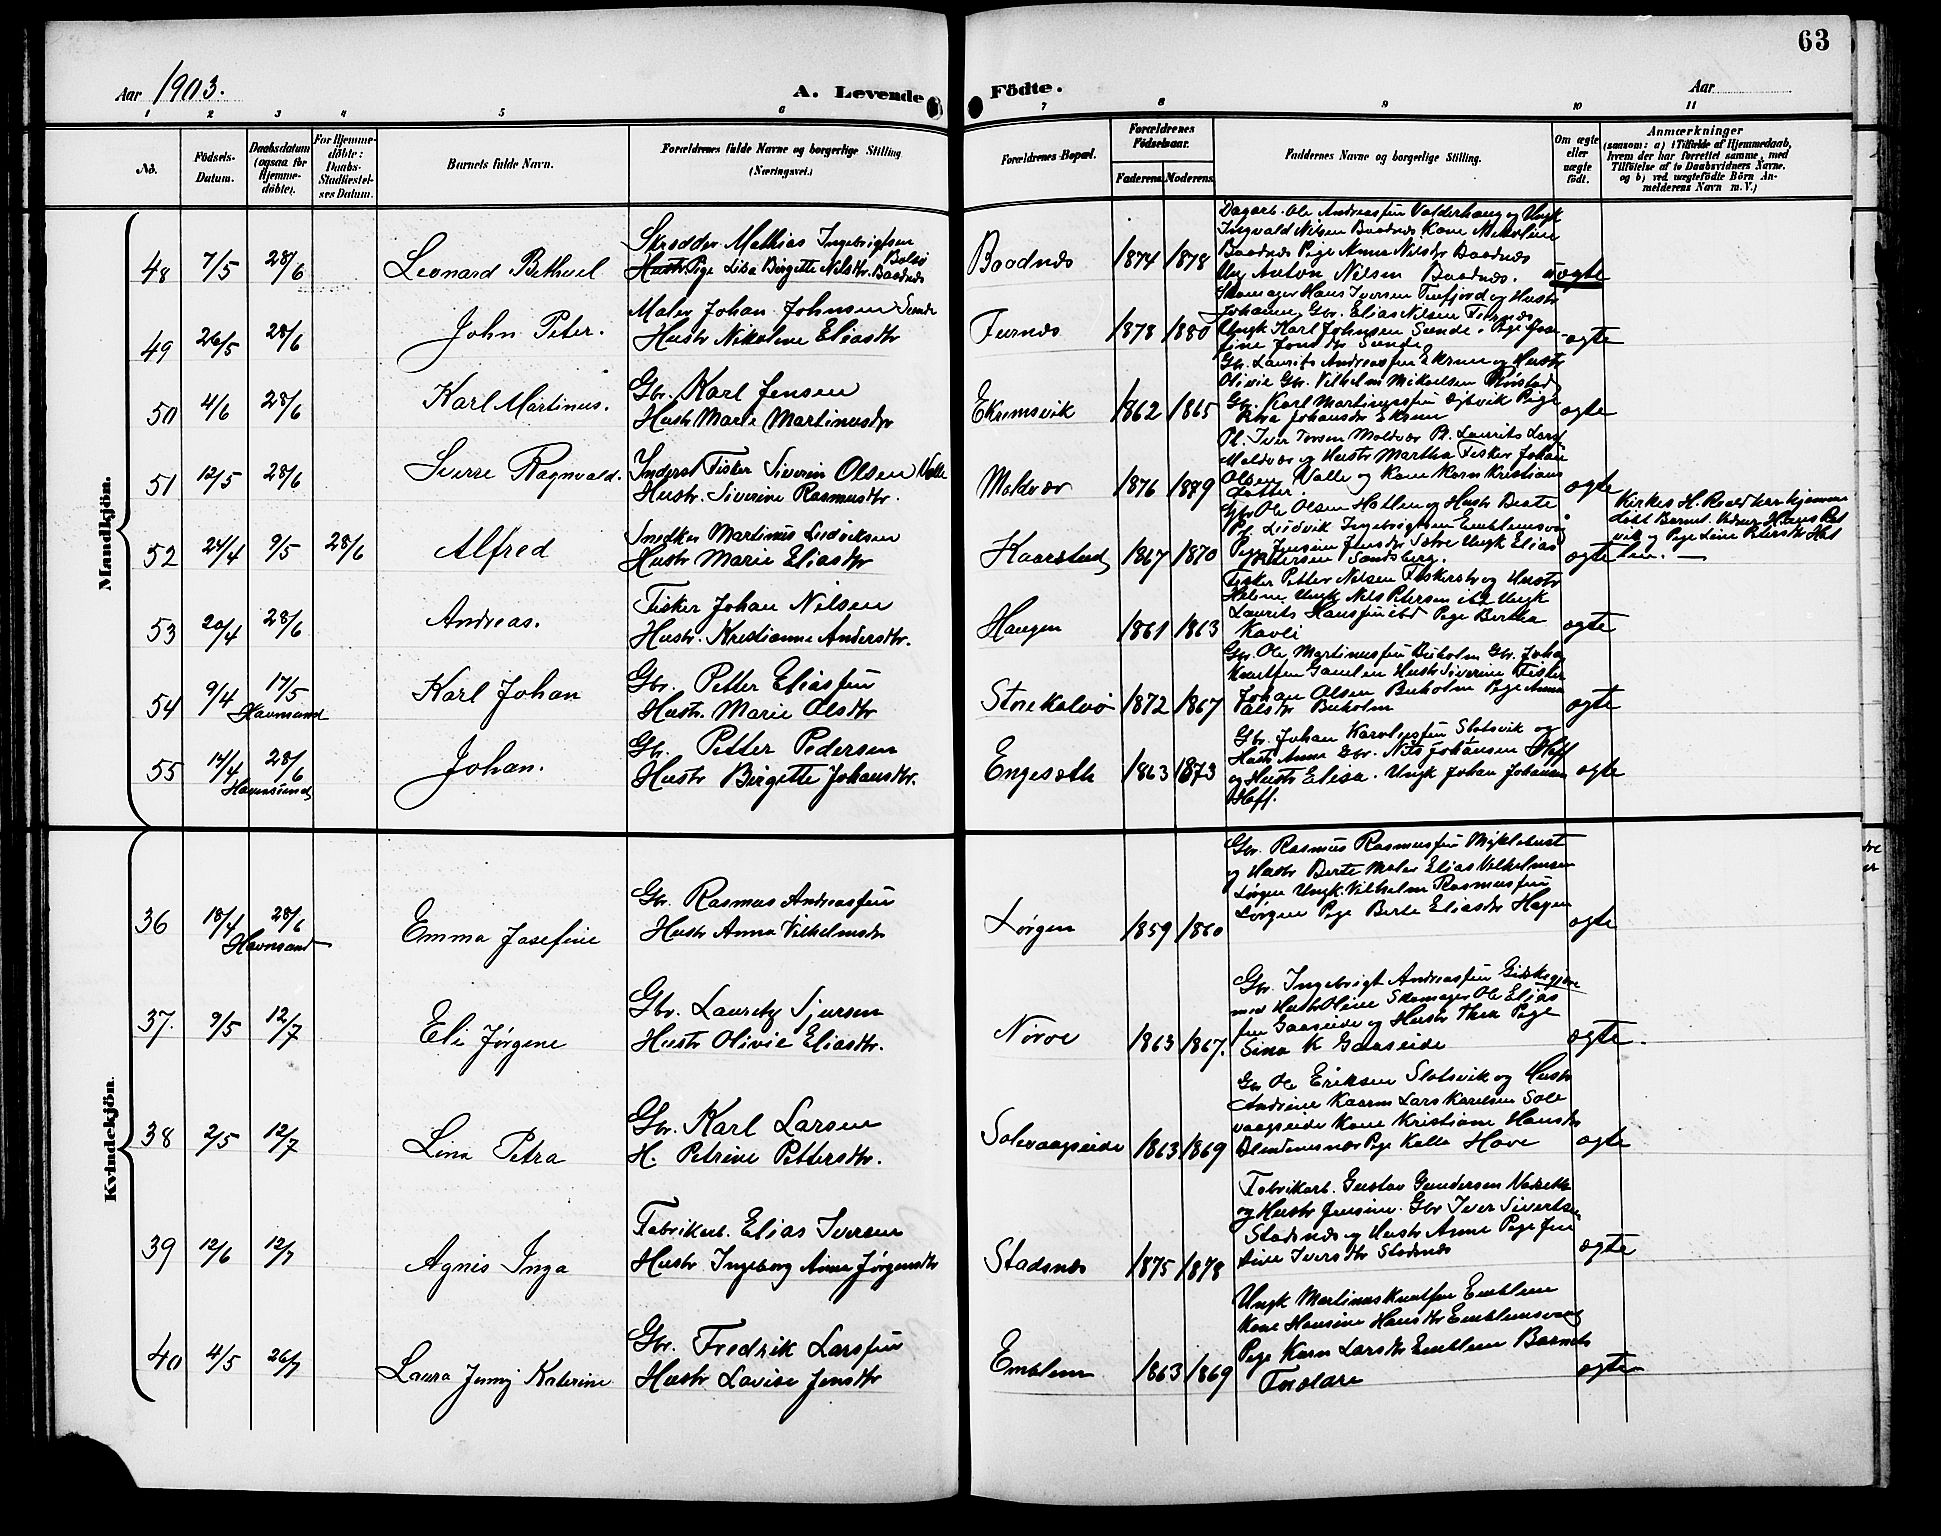 63
Aar 1903.
A. Levende Födte.
Aar
1 2 3 4 5 6 7 8 9 10 11
No.
Födsels-Datum.
Daabsdatum (ogsaa for Hjemme-döbte).
For Hjemme-döbte: Daabs-Stadfæstel-ses Datum.
Barnets fulde Navn.
Forældrenes fulde Navne og borgerlige Stilling (Næringsvei.)
Forældrenes Bopæl.
Forældrenes Födselsaar.
Faderens. Moderens.
Faddernes Navne og borgerlige Stilling.
Om ægte eller uægte födt.
Anmærkninger
(saasom: a) i Tilfælde af Hjemmedaab, hvem der har forrettet samme, med Tilföielse af to Daabsvidners Navne, og b) ved uægtefödte Börn An-melderens Navn m. V.)
Mandkjön.
48 7/5 28/6 Leonard Bethuel
Skrædder Mathias Ingebrigtsen Bolsö
Pige Lisa Birgitte Nilsdtr. Baadnæs
Baadnæs 1874 1878
Dagarb. Ole Andreassen Valderhaug og Ungk
Ingvald Nilsen Baadnæs Kone Nikoline
Baadnæs Pige Anna Nilsdtr Baadnæs
Ung Anton Nilsen Baadnæs.
uægte
49 26/5 28/6 John Peter.
Maler Johan Johnsen Sunde
Hustr Nikoline Eliasdtr
Furnæs 1878 1880
Skomager Hans Iversen Tuefjord og Hustr
Johanne Gbr. Elias Nilsen Furnæs
Ungk Karl Johnsen Sunde. Pige Jose
fine Jonsdtr Sunde
ægte
50 4/6 28/6 Karl Martinus.
Gbr. Karl Jensen
Hustr Marie Martinusdtr
Ekremsvik 1862 1865
Gbr. Laurits Andreassen Ekrem og Hustr
Olivie Gbr. Vilhelm Mikaelsen
Gbr. Karl Martinussen Pige
Johansdtr Ekrem
ægte
51 12/5 28/6 Sverre Ragnvald.
Inderst Fisker Siverin Olsen Valle
Hustr. Siverine Rasmusdtr.
Moldvær 1876 1879
Pl. Iver Iversen Moldvær Pl. Laurits Lars
Moldvær og Hustr Martha Fisker Johan
Olsen Valle og Kone Karn Kristians
datter.
ægte
52 24/4 9/5 28/6 Alfred
Snedker Martinus Ludviksen
Hustr Marie Eliasdtr
Kaarstad 1867 1870
Gbr Ole Olsen Hatlen og Hustr Beate
Pl. Ludvik Ingebrigtsen Emblemsvaag
Pige Jensine Jensdtr Ungk Elias
Pettersen Sandsberg.
ægte
Kirkes. H. Roald har hjemme
döbt Barnet. Vidner Hans Pet
vik og Pige Line Petersdtr Hat
len. —
53 20/4 28/6 Andreas.
Fisker Johan Nilsen
Hustr. Kristianne Andersdtr.
Haugen 1861 1863
Fisker Petter Nilsen Fiskerstr og Hustr
Helene Ungk Nils Petersen ibd Ungk
Laurits Hanssen ibd Pige Bertha
ægte
54 9/4 17/5 Havnsund Karl Johan
Gbr. Petter Eliassen
Hustr. Marie Olsdtr
Storekalvö 1872 1867
Gbr. Ole Martinussen Buholm Gbr. Johan
Knutsen Gamlen Hustr Siverine Fisker
Johan Olsen Buholm Pige Anna
Olsdtr Buholm
ægte
55 14/4 28/6 Havnsund Johan.
Gb. Petter Pedersen
Hustr Birgitte Johansdtr.
Engesæth 1863 1873
Gbr. Johan Karolussen Slotsvik og
Hustr Anna Gbr. Nils Johansen Hoff
og Hustr Elisa. Ungk Johan Johansen
Hoff.
ægte
Kvindekjön.
36 18/4 28/6 Havnsund Emma Josefine
Gbr. Rasmus Andreassen
Hustr Anna Vilhelmsdtr
Lörgen 1859 1860
Gbr. Rasmus Rasmussen Myklebust
og Hustr Berte Maler Elias Vilhelmsen
Lörgen Ungk. Vilhelm Rasmussen
Lörgen Pige Berte Eliasdtr Hagen
ægte
37. 9/5 12/7 Eli Jørgene
Gbr. Lauretz Sjursen
Hustr Olivie Eliasdtr.
Nörve 1863 1867.
Gbr. Ingebrigt Andreassen Gidskegjer
me Hustr Oline Skomager Ole Elias
sen Gaaseide og Hustr Thea Pige
Sina K Gaaseide
ægte.
38 2/5 12/7 Lina Petra
Gbr. Karl Larsen
H. Petrine Pettersdtr.
Solevaagseide 1863 1869
Gbr Ole Eriksen Slotsvik og Hustr
Andrine Kaarm Lars Karelsen Sole
vaagseide Kone Kristiane Hansdtr
Pige Kalla Hove
ægte
39 12/6 12/7 Agnis Inga
Fabrikarb. Elias Iversen
Hustr Ingeborg Anna Jørgensdtr
Stadsnæs 1875 1878
Fabrikarb. Gustav Gundersen
og Hustr Jensine. Gbr Iver Sivertsen
Stadsnæs og Hustr Anne Pige Jen
sine Iversdtr Stadsnæs
ægte
40 4/5 26/7 Laura Jenny Katerine
Gbr. Fredrik Larssen
Hustr Lovise Jensdtr
Emblem 1863 1869
Ungk Martinus Knutsen Emblem
Kone Hansine Hansdtr Emblemsvaag
Pige Karn Larsdtr Emblem Barnets
Forældre
ægte